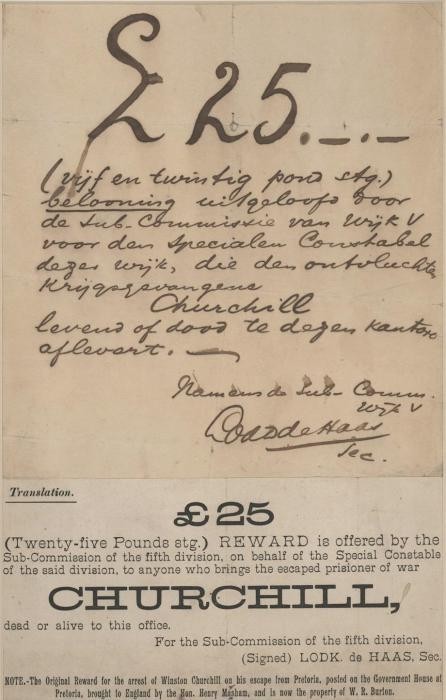 £ 25.—.—
(vijf en twintig pond stg.)
belooning uitgeloofd door
de Sub-Commissie van Wijk V
voor den Specialen Constabel
dezer wijk, die den ontvluchten
Krijgsgevangene
Churchill
levend of dood te dezen kantore
aflevert. —
Namens de Sub-Comm.
Wijk V
Lodk de Haas
Sec.
Translation.
£25
(Twenty-five Pounds stg.) REWARD is offered by the
Sub-Commission of the fifth division, on behalf of the Special Constable
of the said division, to anyone who brings the escaped prisioner of war
CHURCHILL,
dead or alive to this office.
For the Sub-Commission of the fifth division,
(Signed) LODK. de HAAS, Sec.
NOTE.-The Original Reward for the arrest of Winston Churchill on his escape from Pretoria, posted on the Government House at
Pretoria, brought to England by the Hon. Henry Masham, and is now the property of W. R. Burton.